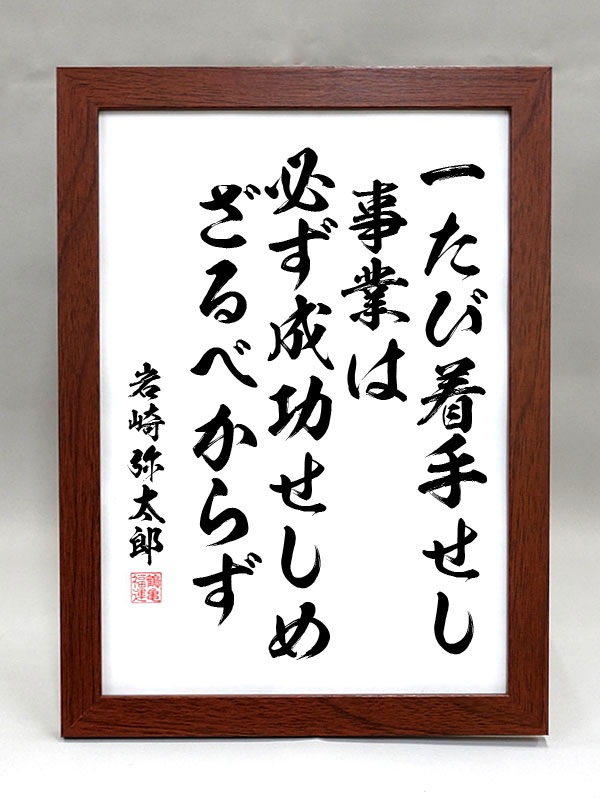 一たび着手せし
事業は
必ず成功せしめ
ざるべからず
岩崎弥太郎
鶴亀
福運